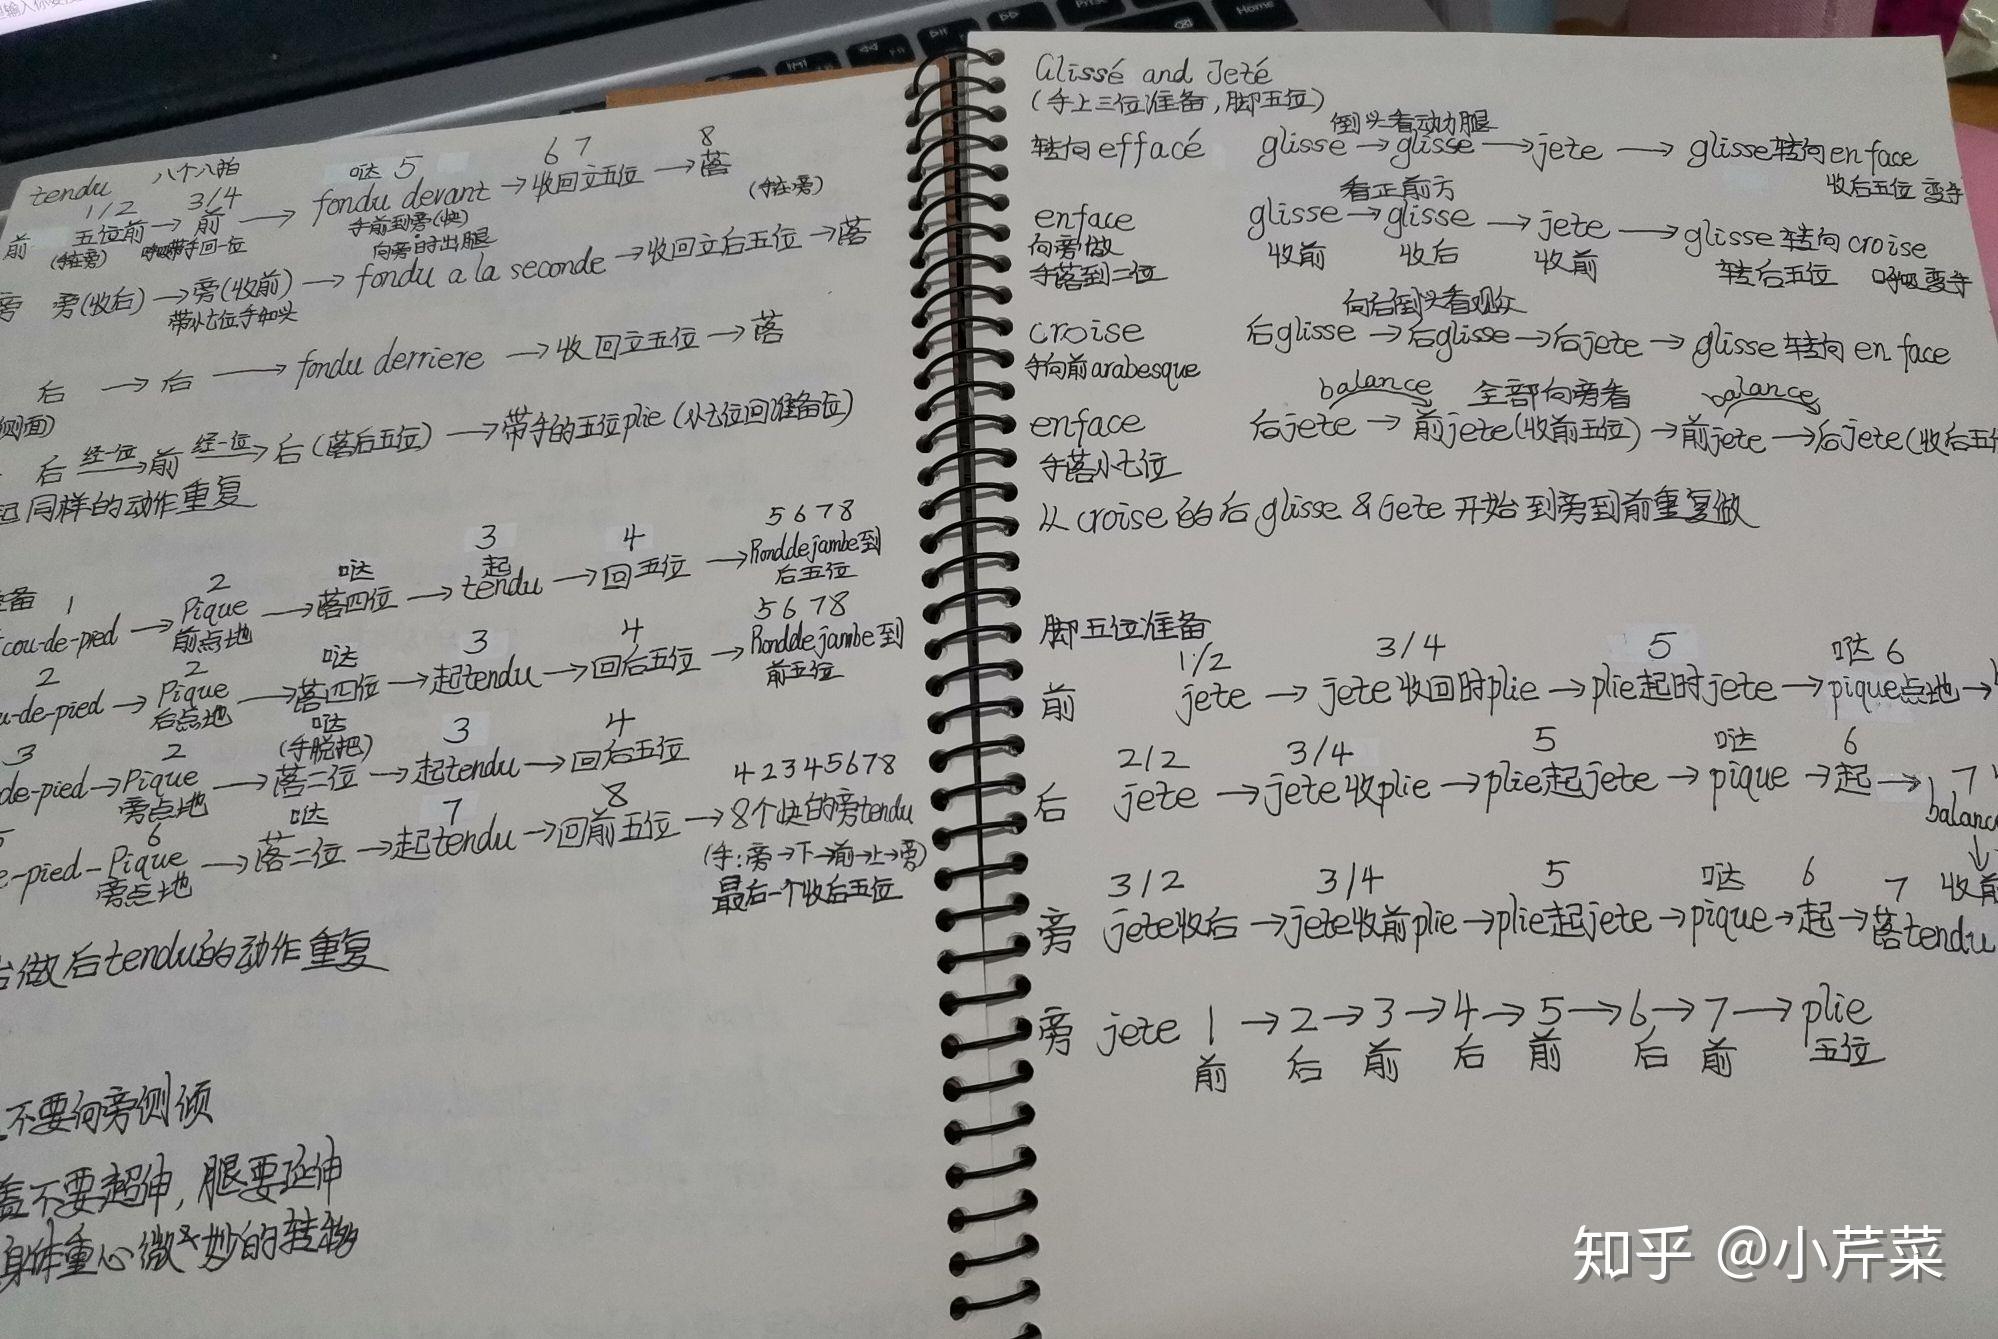 tendu 八个八拍
1/2 3/4 哒 5 6 7 8
前 五位前→前→fondu devant→收回立五位→落
(手在旁) 呼吸带手回一位 手前到旁(快) (手在旁)
向旁时出腿
旁 旁(收后)→旁(收前)→fondu a la seconde→收回立后五位→落
带小七位手和头
后→后→fondu derriere→收回立五位→落
侧面)
后 经一位→前 经一位→后(落后五位)→带手的五位plie(小七位回准备位)
起同样的动作重复
准备 1 2 哒 3 4 5 6 7 8
cou-de-pied→Pique→落四位→起tendu→回五位→Rond de jambe到
前点地 后五位
2 2 哒 3 4 5 6 7 8
u-de-pied→Pique→落四位→起tendu→回后五位→Rond de jambe到
后点地 前五位
3 2 哒 3 4
(手脱把)
de-pied→Pique→落二位→起tendu→回后五位
旁点地
6 哒 7 8 4 2 3 4 5 6 7 8
e-pied-Pique→落二位→起tendu→回前五位→8个快的旁tendu
旁点地 (手:旁→下→前→上→旁)
最后一个收后五位
做后tendu的动作重复
不要向旁侧倾
盖不要超伸,腿要延伸
身体重心微妙的转移
Glissé and Jeté
(手上三位准备,脚五位)
倒头看动力腿
转向effacé glisse→glisse→jete→glisse转向en face
收后五位 变手
看正前方
enface glisse→glisse→jete→glisse转向croise
向旁做 收前 收后 收前 转后五位 呼吸变手
手落到二位
向后倒头看观众
croise 后glisse→后glisse→后jete→glisse转向en face
手向前arabesque
balance 全部向旁看 balance
enface 后jete→前jete(收前五位)→前jete→后jete(收后五位
手落小七位
从croise的后glisse & Gete开始到旁到前重复做
脚五位准备
1/2 3/4 5 哒 6
前 jete→jete收回时plie→plie起时jete→pique点地→
2/2 3/4 5 哒 6 7
后 jete→jete收plie→plie起jete→pique→起→balance
3/2 3/4 5 哒 6 7 收前
旁 jete收后→jete收前plie→plie起jete→pique→起→落tendu
旁 jete 1→2→3→4→5→6→7→plie
前 后 前 后 前 后 前 五位
知乎 @小芹菜